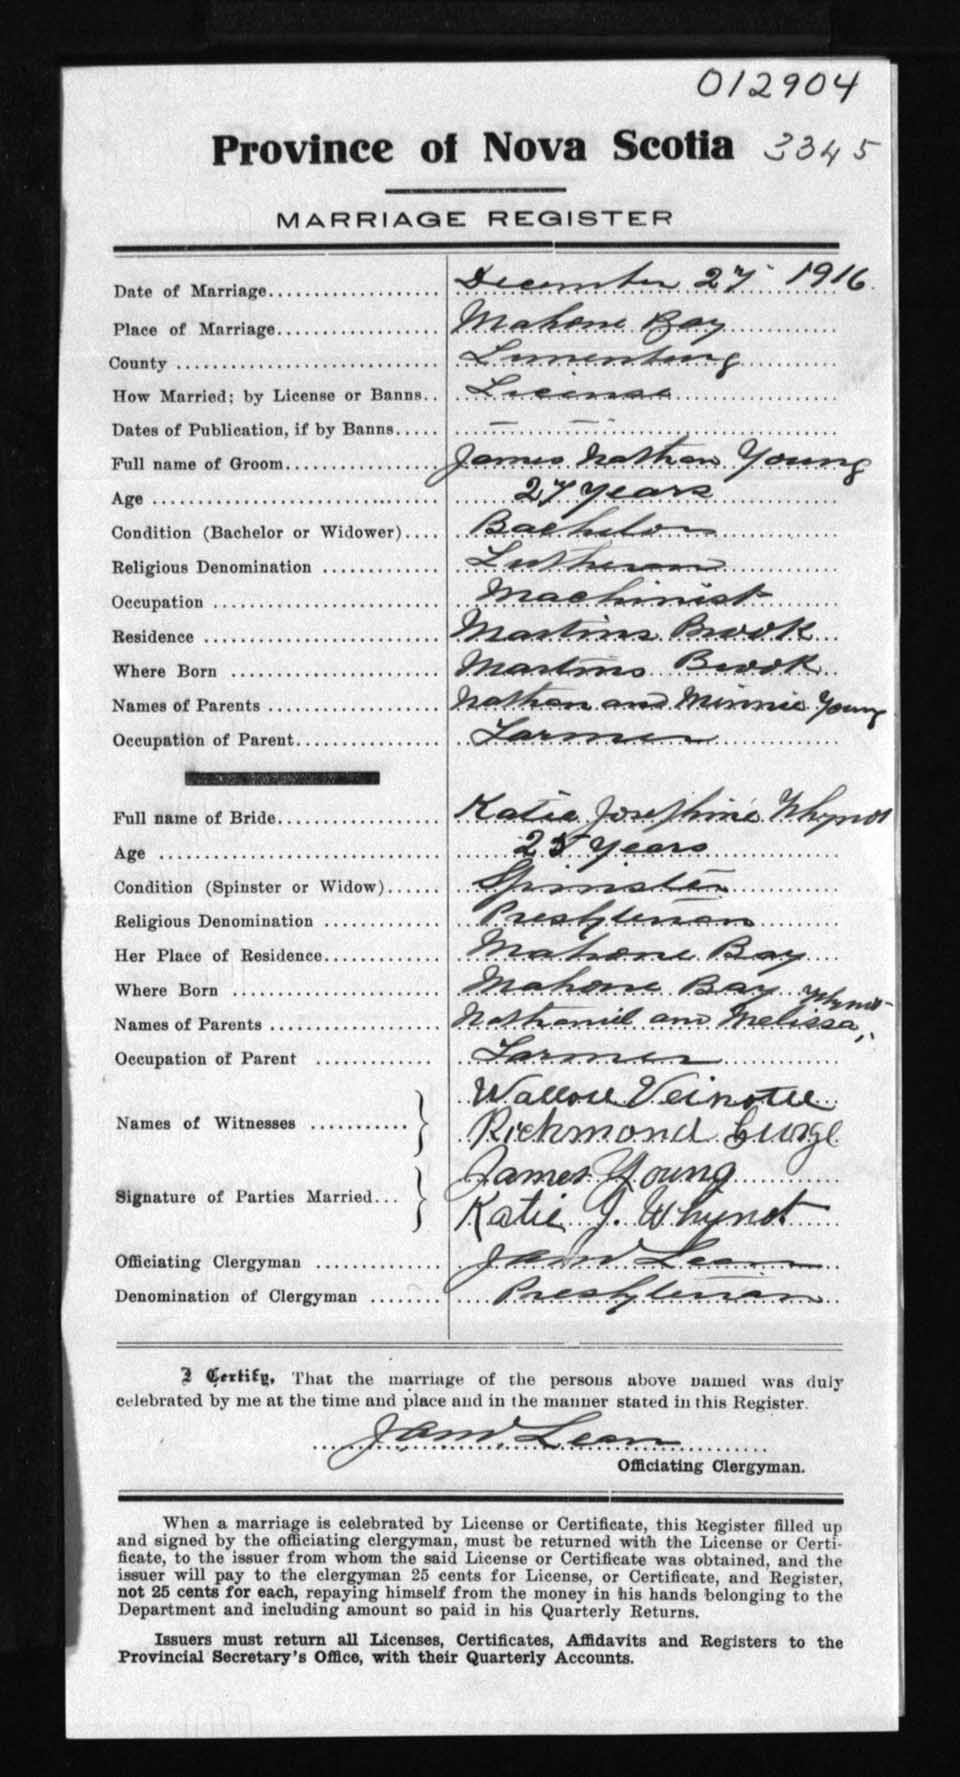 012904
Province of Nova Scotia 3345
MARRIAGE REGISTER
Date of Marriage................... December 27 1916
Place of Marriage.................. Mahone Bay
County ............................. Lunenburg
How Married; by License or Banns.. License
Dates of Publication, if by Banns..... — —
Full name of Groom................. James Nathan Young
Age ................................ 27 years
Condition (Bachelor or Widower).... Bachelor
Religious Denomination ............. Lutheran
Occupation ......................... Machinist
Residence .......................... Martins Brook
Where Born ....................... Martins Brook
Names of Parents ................... Nathan and Minnie Young
Occupation of Parent................ Farmer
Full name of Bride.................. Katie Josephine Whynot
Age ............................... 25 years
Condition (Spinster or Widow)...... Spinster
Religious Denomination .............. Presbyterian
Her Place of Residence............. Mahone Bay
Where Born ....................... Mahone Bay Whynot
Names of Parents ................... Nathaniel and Melissa,
Occupation of Parent .............. Farmer
Names of Witnesses ........... Veinotte
Richmond
Signature of Parties Married... James Young
Katie J. Whynot
Officiating Clergyman .............. Lean
Denomination of Clergyman ........ Presbyterian
I Certify, That the marriage of the persons above named was duly
celebrated by me at the time and place and in the manner stated in this Register.
Lean
Officiating Clergyman.
When a marriage is celebrated by License or Certificate, this Register filled up
and signed by the officiating clergyman, must be returned with the License or Certi-
ficate, to the issuer from whom the said License or Certificate was obtained, and the
issuer will pay to the clergyman 25 cents for License, or Certificate, and Register,
not 25 cents for each, repaying himself from the money in his hands belonging to the
Department and including amount so paid in his Quarterly Returns.
Issuers must return all Licenses, Certificates, Affidavits and Registers to the
Provincial Secretary's Office, with their Quarterly Accounts.